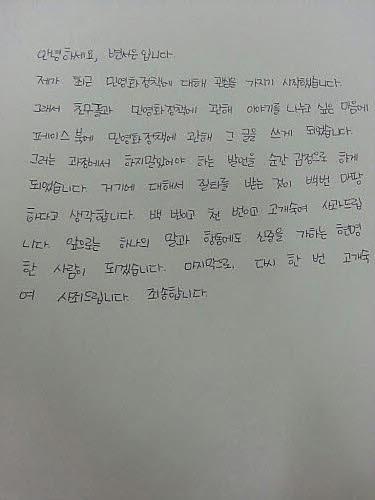 안녕하세요, 변서은 입니다.
제가 최근 민영화정책에 대해 관심을 가지기 시작했습니다.
그래서 친구들과 민영화정책에 관해 이야기를 나누고 싶은 마음에
페이스 북에 민영화 정책에 관해 그 글을 쓰게 되었습니다.
그러는 과정에서 하지말았어야 하는 발언을 순간 감정으로 하게
되었습니다. 거기에 대해서 질타를 받는 것이 백번 마땅
하다고 생각합니다. 백 번이고 천 번이고 고개숙여 사과드립
니다. 앞으로는 하나의 말과 행동에도 신중을 가하는 현명
한 사람이 되겠습니다. 마지막으로, 다시 한 번 고개숙
여 사죄드립니다. 죄송합니다.